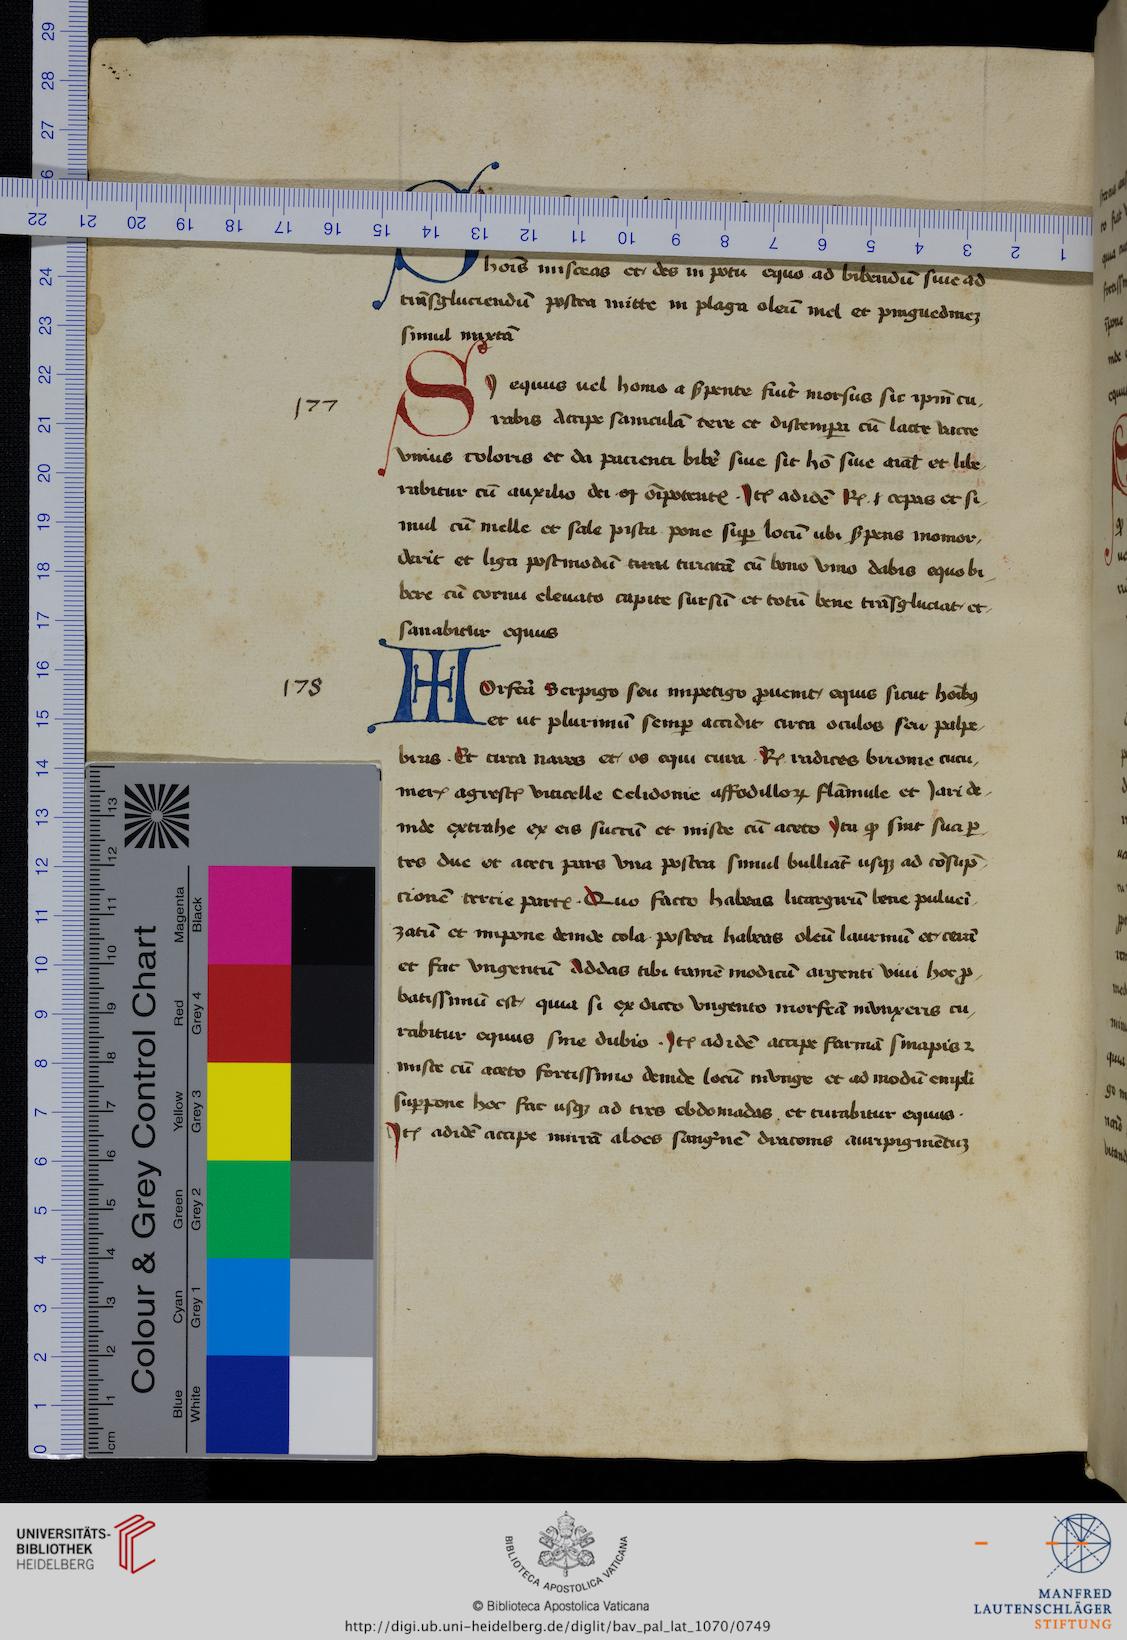 horis misceas et des in potu equo ad bibendū siue ad
trāsgluciendū postea mitte in plaga oleū mel et pinguedinez
simul mixtā
177
Sj equus uel homo a spente fuit morsus sic ipm cu,
rabis Accipe saniculā tere et distempera cū lacte vacce
vnius coloris et da pacienti biber siue sit hō siue aial et libe
rabitur cū auxilio dei oīpotentis Itē ad idē Rx cepas et si
mul cū melle et sale pista pone sup locū ubi spens momor,
derit et liga postmodū cū bono vino dabis equo bi
bere cū cornu eleuato capite sursū et totū bene trāsgluciat et
sanabitur equus
178
Morfea Serpigo seu impetigo prouenit equis sicut
et ut plurimū semp accidit circa oculos seu palpe
bras Et circa nares et os equi cura Rx radices brionie cucu,
meris agrestis viticelle Celidonie affodillorum flāmule et Jari de
inde extrahe ex eis succū et misce cū aceto Jta quod sint suci p
tes due et aceti pars vna postea simul bulliāt usque ad cōsup
cionē tercie partis Quo facto habeas litargirū bene pulueri
zatū et impone deinde cola postea habeas oleū laurinū et cerā
et fac vngentū Addas tibi tamē modicū argenti viui hoc pro
batissimū est quia si ex dicto vngento morfeā inunxeris cu,
rabitur equus sine dubio Itē ad idē accipe farinā sinapis z
misce cū aceto fortissimo deinde locū inunge et ad modū empli
suppone hoc fac usque ad tres ebdomadas et curabitur equus
Itē ad idē accipe mirrā aloes sanguinē draconis auripigmētuz
29
28
27
24
23
22
21
20
19
18
17
16
15
14
13
12
11
10
9
8
7
6
5
4
3
2
1
0
22 21 20 19 18 17 16 15 14 13 12 11 10 9 8 7 6 5 4 3 2 1
Colour & Grey Control Chart
Blue Cyan Green Yellow Red Magenta
White Grey 1 Grey 2 Grey 3 Grey 4 Black
cm 1 2 3 4 5 6 7 8 9 10 11 12 13
UNIVERSITÄTS-
BIBLIOTHEK
HEIDELBERG
BIBLIOTECA APOSTOLICA VATICANA
© Biblioteca Apostolica Vaticana
http://digi.ub.uni-heidelberg.de/diglit/bav_pal_lat_1070/0749
MANFRED
LAUTENSCHLÄGER
STIFTUNG